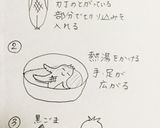 包丁のとがっている
部分で切り込みを
入れる
2
熱湯をかける
手足が
広がる
3
黒ごま